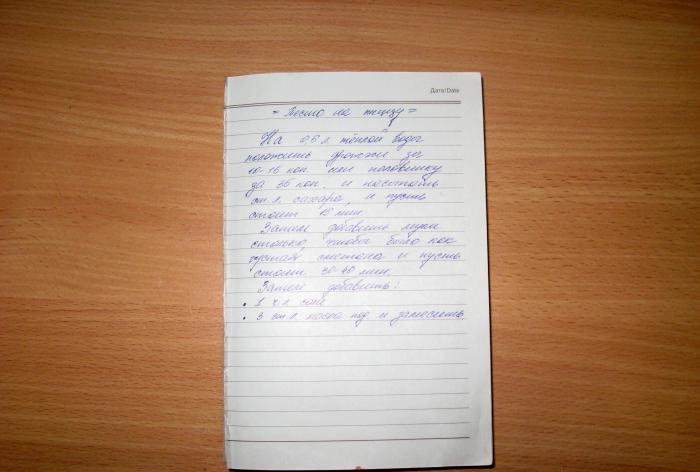 Дата/Date
= Тесто на пиццу =
На 0,5 л. тёплой воды
положить дрожжи за
10-15 коп. или половинку
за 35 коп. и насыпать
ст. л. сахара, и пусть
стоит 15 мин.
Затем добавить муки
столько, чтобы было как
густая сметана и пусть
стоит 30-40 мин.
Затем добавить:
• 1 ч. л. соли
• 3 ст. л. масла под. и замесить.